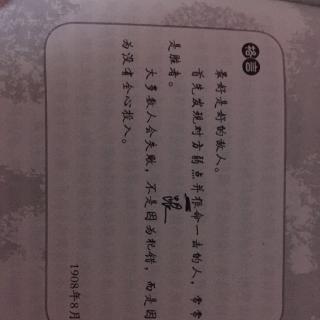 格言
最好是好的敌人。
首先发现对方弱点并狠命一击的人，常常
是胜者。
大多数人会失败，不是因为犯错，而是因
为没有全心投入。
1908年8月